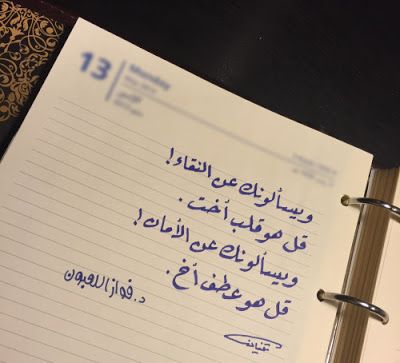 13
Monday
الاثنين
ويسألونك عن النقاء!
قل هو قلب أخت.
ويسألونك عن الأمان!
قل هو عطف أخ.
د. فواز اللعبون